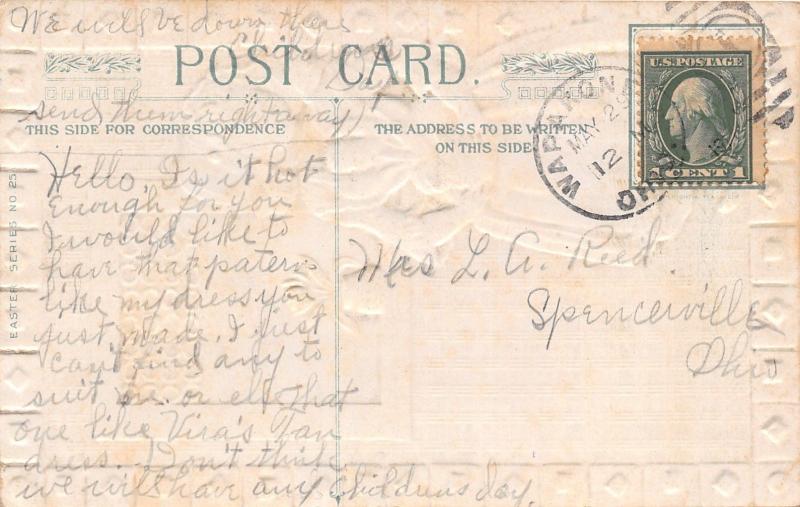 We will be down there
Childrens
Day
send them right away
POST CARD.
THIS SIDE FOR CORRESPONDENCE
THE ADDRESS TO BE WRITTEN
ON THIS SIDE
U.S. POSTAGE
1 CENT 1
WAPAKON
MAY 29
12 M
OHIO
EASTER SERIES NO 25
Hello. Is it hot
enough for you
I would like to
have that patern
like my dress you
just made. I just
can't find any to
suit me or else that
one like Vira's Tan
dress. Don't think
we will have any Childrens day.
Mrs L. A. Reed
Spencerville
Ohio